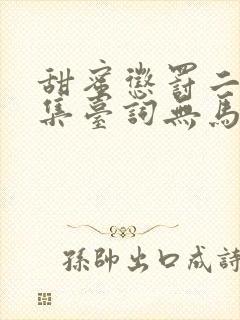 甜蜜懲罰二
集臺詞無馬
孫帥出口成詩